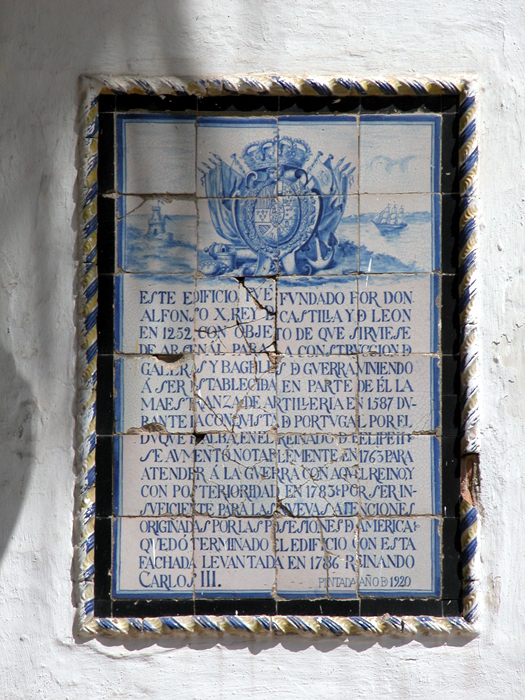 ESTE EDIFICIO, FVE FVNDADO POR DON
ALFONSO X, REY D CASTILLA Y D LEON
EN 1252, CON OBJETO DE QVE SIRVIESE
DE ARSENAL PARA LA CONSTRUCCION D
GALERAS Y BAGELES D GVERRA VINIENDO
Á SER ESTABLECIDA EN PARTE DE ÉL LA
MAESTRANZA DE ARTILLERIA EN 1587 DV-
RANTE LA CONQVISTA D PORTVGAL POR EL
DVQVE D ALBA EN EL REINADO D FELIPE II
SE AVMENTÓ NOTABLEMENTE EN 1763 PARA
ATENDER Á LA GVERRA CON AQVEL REINO Y
CON POSTERIORIDAD EN 1783 POR SER IN-
SVFICIENTE PARA LAS NVEVAS ATENCIONES
ORIGINADAS POR LAS POSESIONES D AMERICA
QVEDÓ TERMINADO EL EDIFICIO CON ESTA
FACHADA LEVANTADA EN 1786 REINANDO
CARLOS III.
PINTADA AÑO D 1920